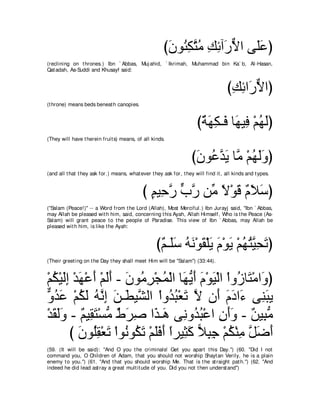 (عَلَى الاٌّرَآئِكِ مُتَّكِئُونَ)
(reclining on thrones.) Ibn `Abbas, Mujahid, `Ikrimah, Muhammad bin Ka`b, Al-Hasan,
Qatadah, As-Suddi and Khusayf said:
(الاٌّرَائِكِ)
(throne) means beds beneath canopies.
(لَهُمْ فِيهَا فَـكِهَةٌ)
(They will have therein fruits) means, of all kinds.
(وَلَهُمْ مَّا يَدَّعُونَ)
(and all that they ask for.) means, whatever they ask for, they will find it, all kinds and types.
(سَلاَمٌ قَوْلاً مِّن رَّبٍّ رَّحِيمٍ )
("Salam (Peace!)" -- a Word from the Lord (Allah), Most Merciful.) Ibn Jurayj said, "Ibn `Abbas,
may Allah be pleased with him, said, concerning this Ayah, Allah Himself, Who is the Peace (As-
Salam) will grant peace to the people of Paradise. This view of Ibn `Abbas, may Allah be
pleased with him, is like the Ayah:
(تَحِيَّتُهُمْ يَوْمَ يَلْقَوْنَهُ سَلَـمٌ)
(Their greeting on the Day they shall meet Him will be "Salam") (33:44).
(وَامْتَازُواْ الْيَوْمَ أَيُّهَا الْمُجْرِمُونَ - أَلَمْ أَعْهَدْ إِلَيْكُمْ
يبَنِى ءَادَمَ أَن لاَّ تَعْبُدُواْ الشَّيطَـنَ إِنَّهُ لَكُمْ عَدُوٌّ
مُّبِينٌ - وَأَنِ اعْبُدُونِى هَـذَا صِرَطٌ مُّسْتَقِيمٌ - وَلَقَدْ
أَضَلَّ مِنْكُمْ جِبِلاًّ كَثِيراً أَفَلَمْ تَكُونُواْ تَعْقِلُونَ )
(59. (It will be said): "And O you the criminals! Get you apart this Day.") (60. "Did I not
command you, O Children of Adam, that you should not worship Shaytan Verily, he is a plain
enemy to you.") (61. "And that you should worship Me. That is the straight path.") (62. "And
indeed he did lead astray a great multitude of you. Did you not then understand")